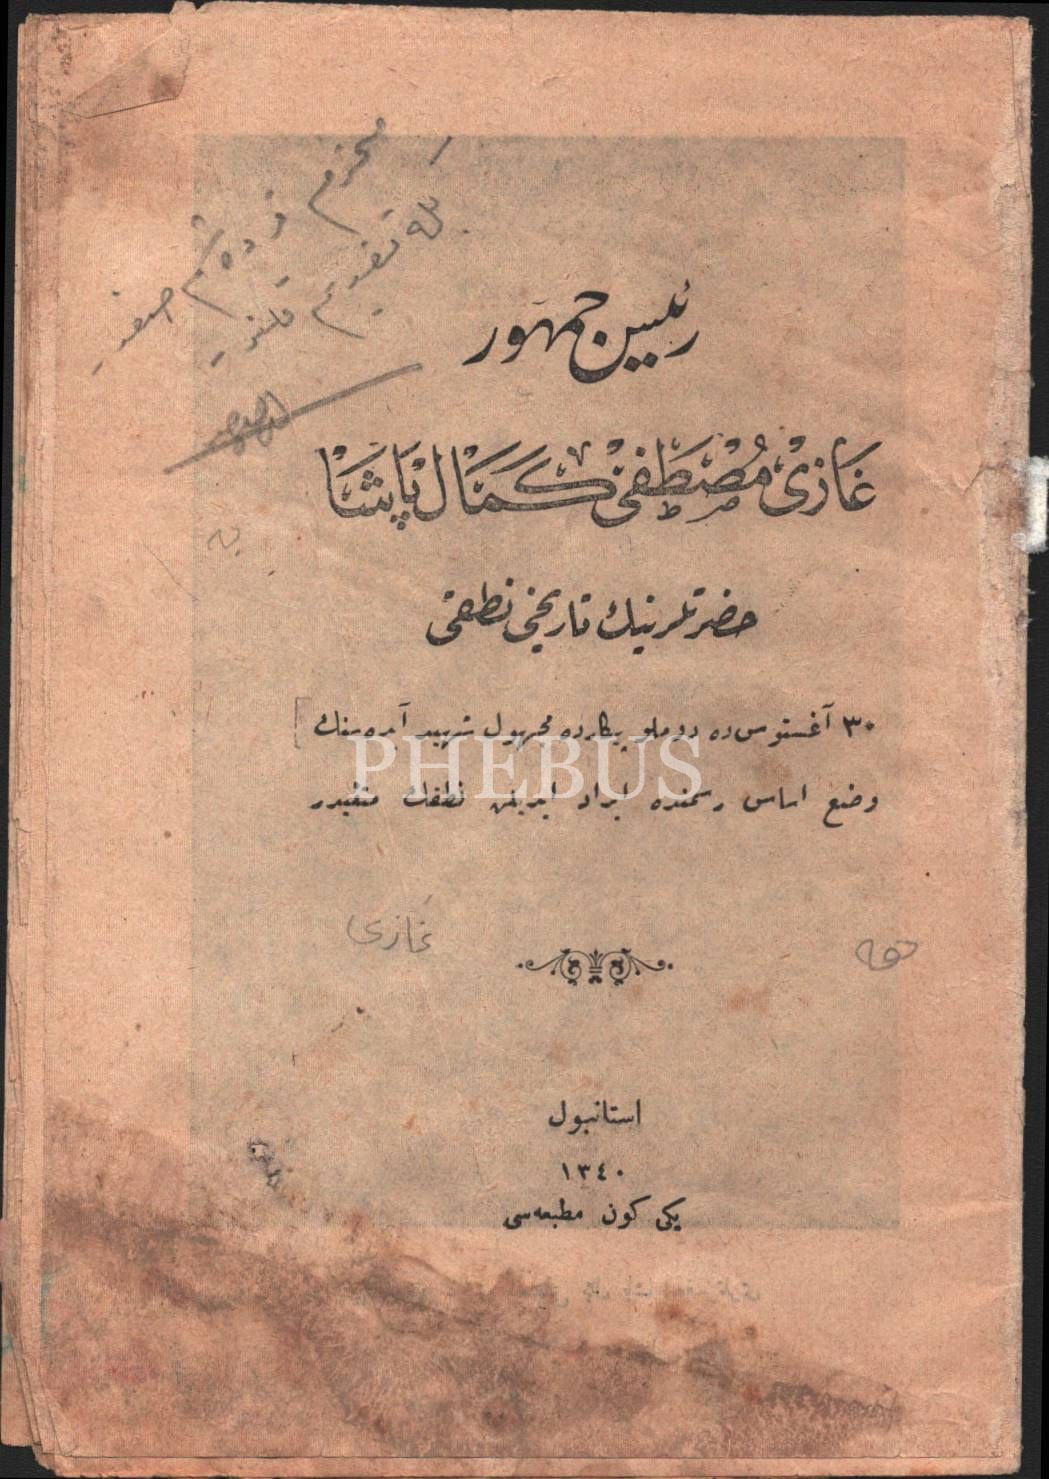 محرم
رئيس جمهور
غازى مصطفى كمال پاشا
حضرتلرينك تاريخى نطقى
٣٠ آغستوس ده دوملو پيكارده مجهول شهيد آبده سنك
وضع اساس رسمنده ايراد ايديلن نطقك متنيدر
PHEBUS
غازى
استانبول
١٣٤٠
يكى كون مطبعه سى